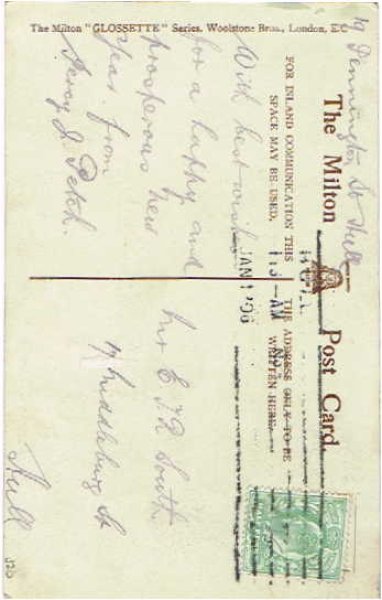 The Milton "GLOSSETTE" Series. Woolstone Bros., London, E.C
The Milton Post Card.
FOR INLAND COMMUNICATION THIS
SPACE MAY BE USED.
THE ADDRESS ONLY TO BE
WRITTEN HERE.
19 Pennington St Hull
With best wishes
for a happy and
prosperous new
year from
Percy J. Petch.
JAN 1
AM
E. J. R. South
17 Middleburg St
Hull